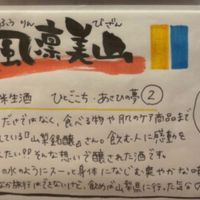 ふうりん びざん
風凛美山
米生酒 ひとごこち・あさひの夢②
だけではなく、食べる物や肌のケア商品まで
している『山梨銘醸』さん。飲む人に感動を
たい!!そんな想いで醸された酒です。
の水のようにスーっと身体になじむ爽やかな味
か旅行はできないけど、飲めば山梨県に行った気